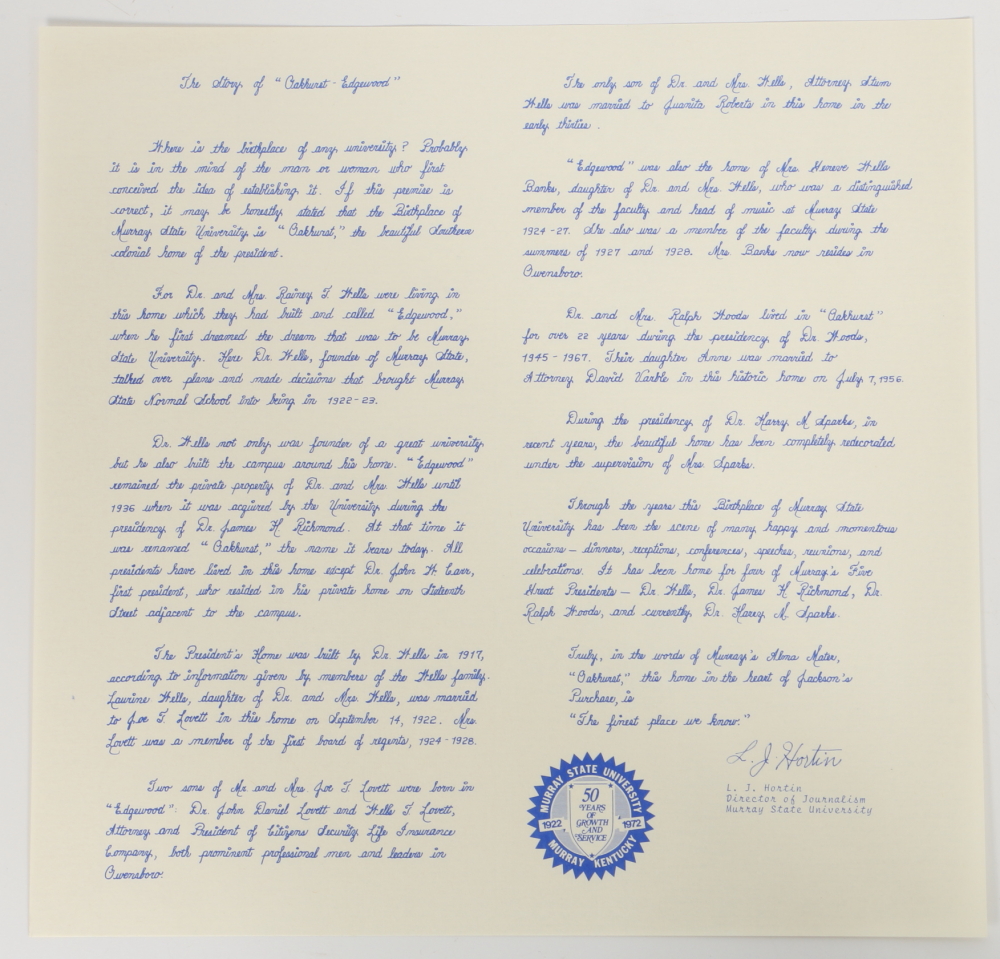 The Story of "Oakhurst - Edgewood"
Where is the birthplace of any university? Probably
it is in the mind of the man or woman who first
conceived the idea of establishing it. If this premise is
correct, it may be honestly stated that the Birthplace of
Murray State University is "Oakhurst," the beautiful Southern
colonial home of the president.
For Dr. and Mrs. Rainey T. Wells were living in
this home which they had built and called "Edgewood,"
when he first dreamed the dream that was to be Murray
State University. Here Dr. Wells, founder of Murray State,
talked over plans and made decisions that brought Murray
State Normal School into being in 1922-23.
Dr. Wells not only was founder of a great university
but he also built the campus around his home. "Edgewood"
remained the private property of Dr. and Mrs. Wells until
1936 when it was acquired by the University during the
presidency of Dr. James H. Richmond. At that time it
was renamed "Oakhurst," the name it bears today. All
presidents have lived in this home except Dr. John W. Carr,
first president, who resided in his private home on Sixteenth
Street adjacent to the campus.
The President's Home was built by Dr. Wells in 1917,
according to information given by members of the Wells family.
Laurine Wells, daughter of Dr. and Mrs. Wells, was married
to Joe T. Lovett in this home on September 14, 1922. Mrs.
Lovett was a member of the first board of regents, 1924-1928.
Two sons of Mr. and Mrs. Joe T. Lovett were born in
"Edgewood": Dr. John Daniel Lovett and Wells T. Lovett,
Attorney and President of Citizens Security Life Insurance
Company, both prominent professional men and leaders in
Owensboro.
The only son of Dr. and Mrs. Wells, Attorney Stum
Wells was married to Juanita Roberts in this home in the
early thirties.
"Edgewood" was also the home of Mrs. Geneve Wells
Banks, daughter of Dr. and Mrs. Wells, who was a distinguished
member of the faculty and head of music at Murray State
1924-27. She also was a member of the faculty during the
summers of 1927 and 1928. Mrs. Banks now resides in
Owensboro.
Dr. and Mrs. Ralph Woods lived in "Oakhurst"
for over 22 years during the presidency of Dr. Woods,
1945-1967. Their daughter Anne was married to
Attorney David Karble in this historic home on July 7, 1956.
During the presidency of Dr. Harry M. Sparks, in
recent years, the beautiful home has been completely redecorated
under the supervision of Mrs. Sparks.
Through the years this Birthplace of Murray State
University has been the scene of many happy and momentous
occasions - dinners, receptions, conferences, speeches, reunions, and
celebrations. It has been home for four of Murray's Five
Great Presidents - Dr. Wells, Dr. James H. Richmond, Dr.
Ralph Woods, and currently, Dr. Harry M. Sparks.
Truly, in the words of Murray's Alma Mater,
"Oakhurst," this home in the heart of Jackson's
Purchase, is
"The finest place we know."
L. J. Hortin
L. J. Hortin
Director of Journalism
Murray State University
MURRAY STATE UNIVERSITY
50
YEARS
OF
GROWTH
AND
SERVICE
1922 1972
MURRAY KENTUCKY